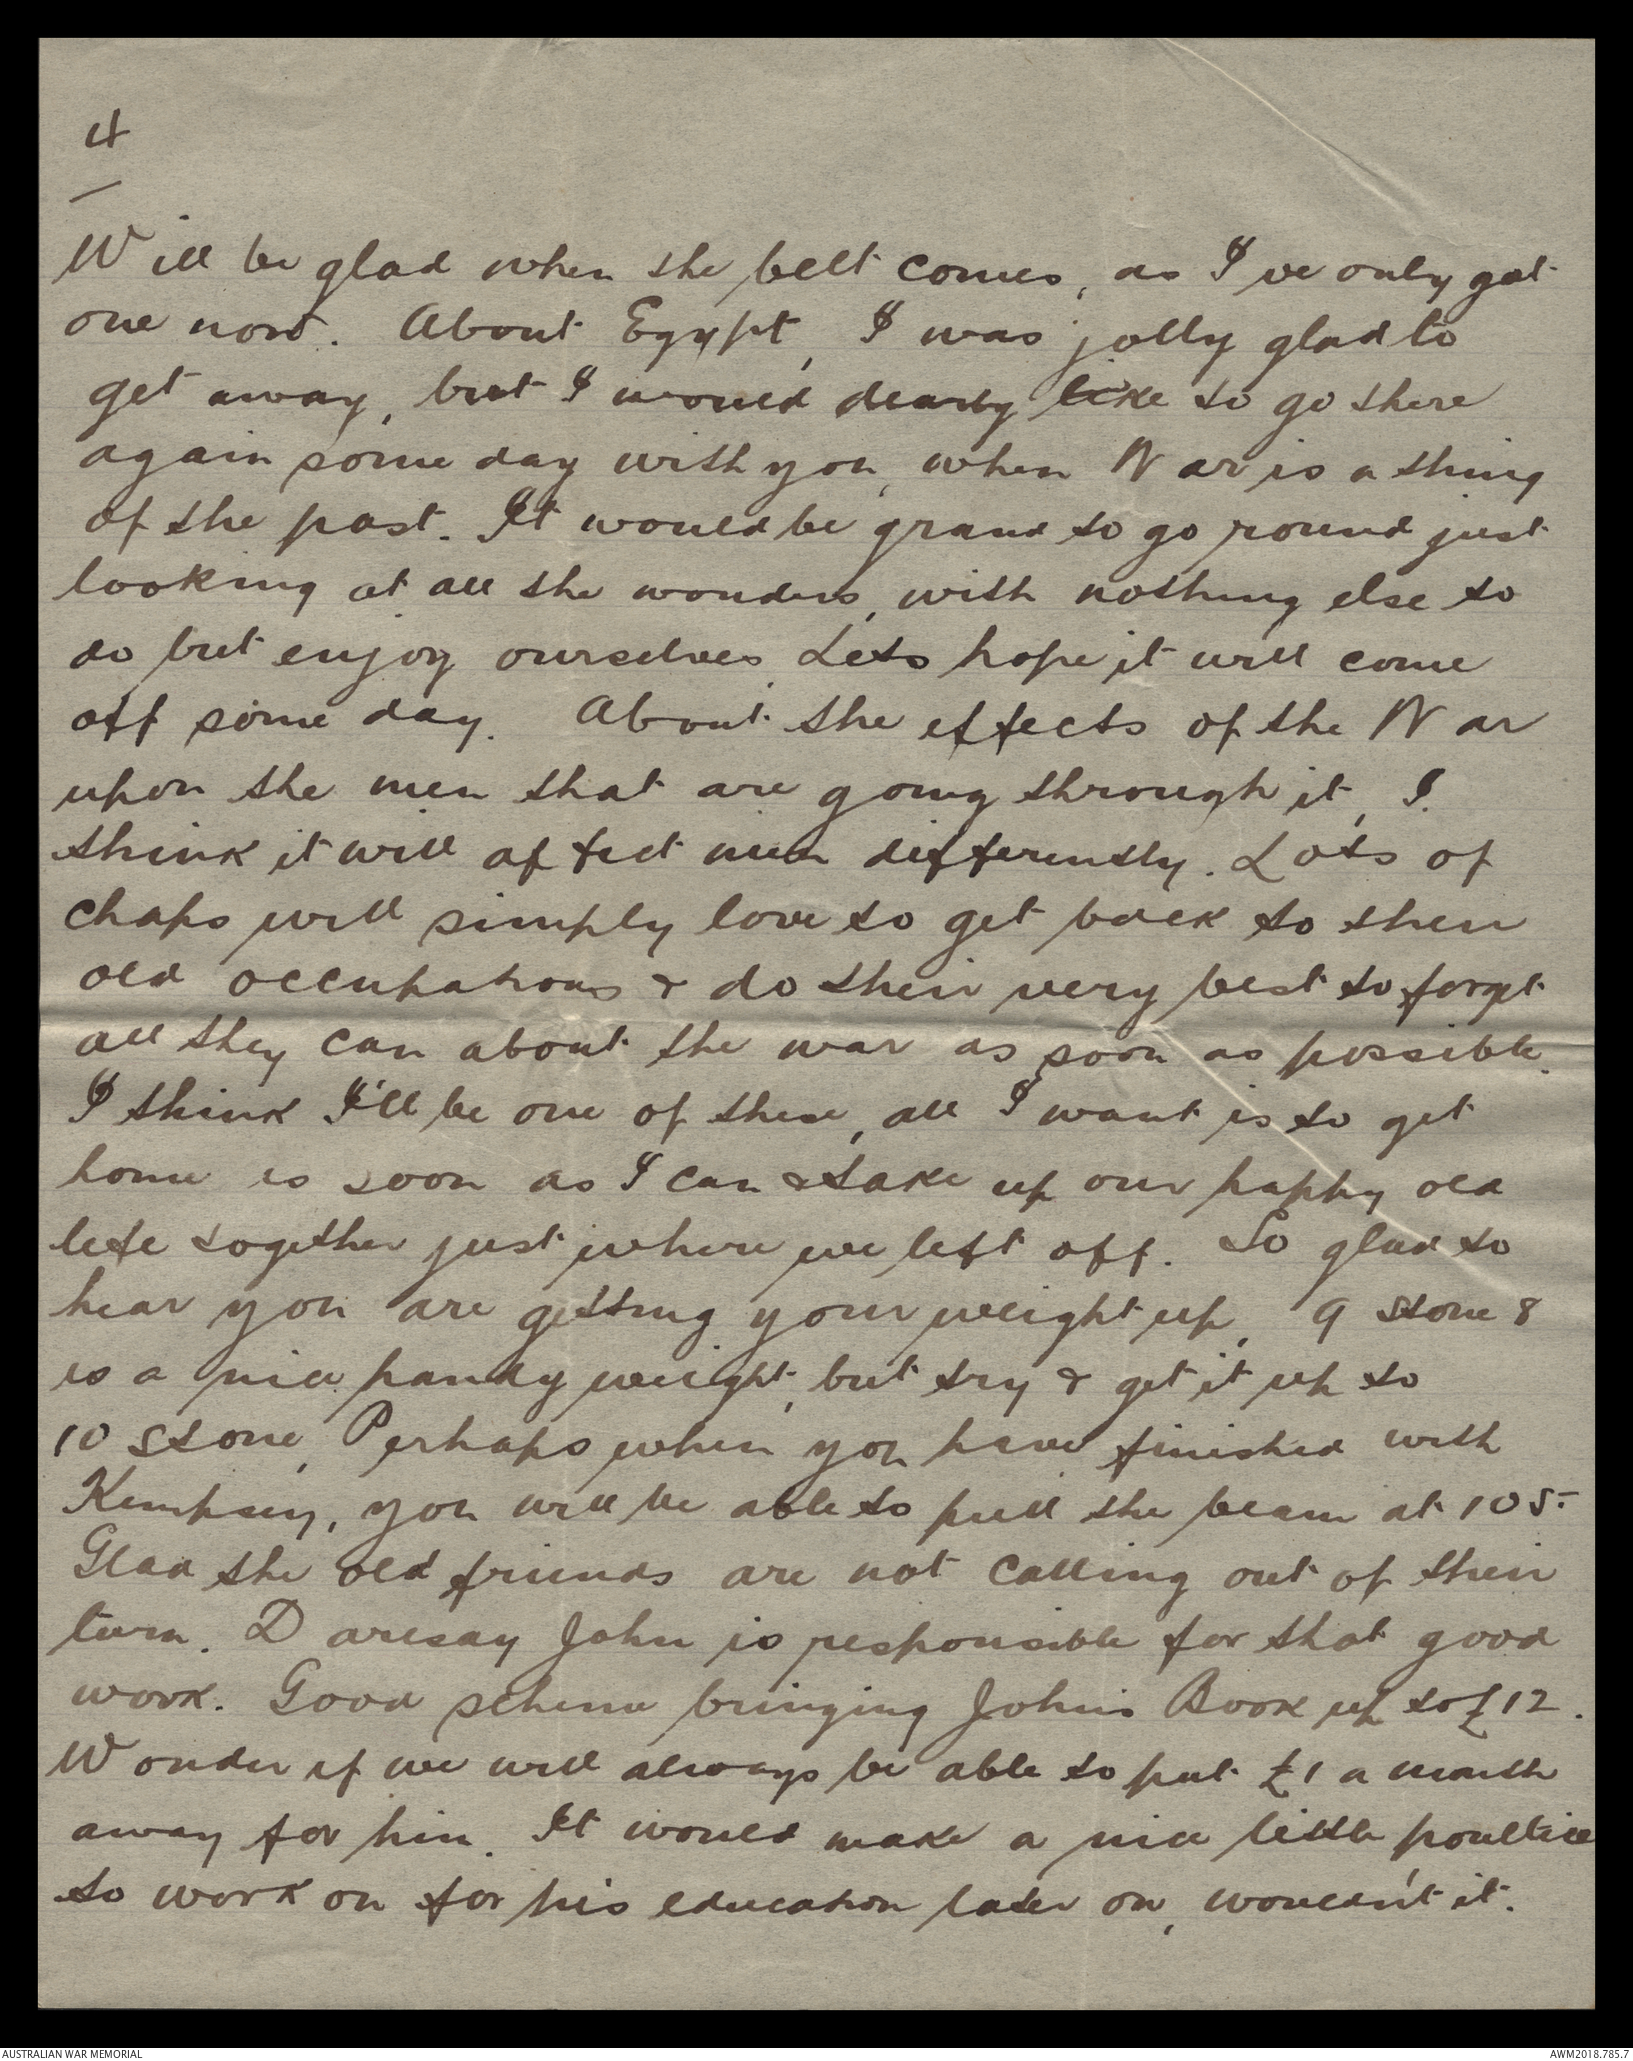 4
Will be glad when the belt comes, as I've only got
one now. About Egypt, I was jolly glad to
get away, but I would dearly like to go there
again some day with you, when War is a thing
of the past. It would be grand to go round just
looking at all the wonders, with nothing else to
do but enjoy ourselves. Lets hope it will come
off some day. About the effects of the War
upon the men that are going through it, I
think it will affect men differently. Lots of
chaps will simply love to get back to their
old occupations & do their very best to forget
all they can about the war as soon as possible.
I think I'll be one of these, all I want is to get
home as soon as I can & take up our happy old
life together just where we left off. So glad to
hear you are getting your weight up, 9 stone 8
is a nice handy weight, but try & get it up to
10 stone. Perhaps when you have finished with
Kempsey, you will be able to pull the beam at 10 s.
Glad the old friends are not calling out of their
turn. Daresay John is responsible for that good
work. Good scheme bringing John's Book up to £12.
Wonder if we will always be able to put £1 a month
away for him. It would make a nice little poultice
to work on for his education later on, wouldn't it.
AUSTRALIAN WAR MEMORIAL
AWM2018.785.7